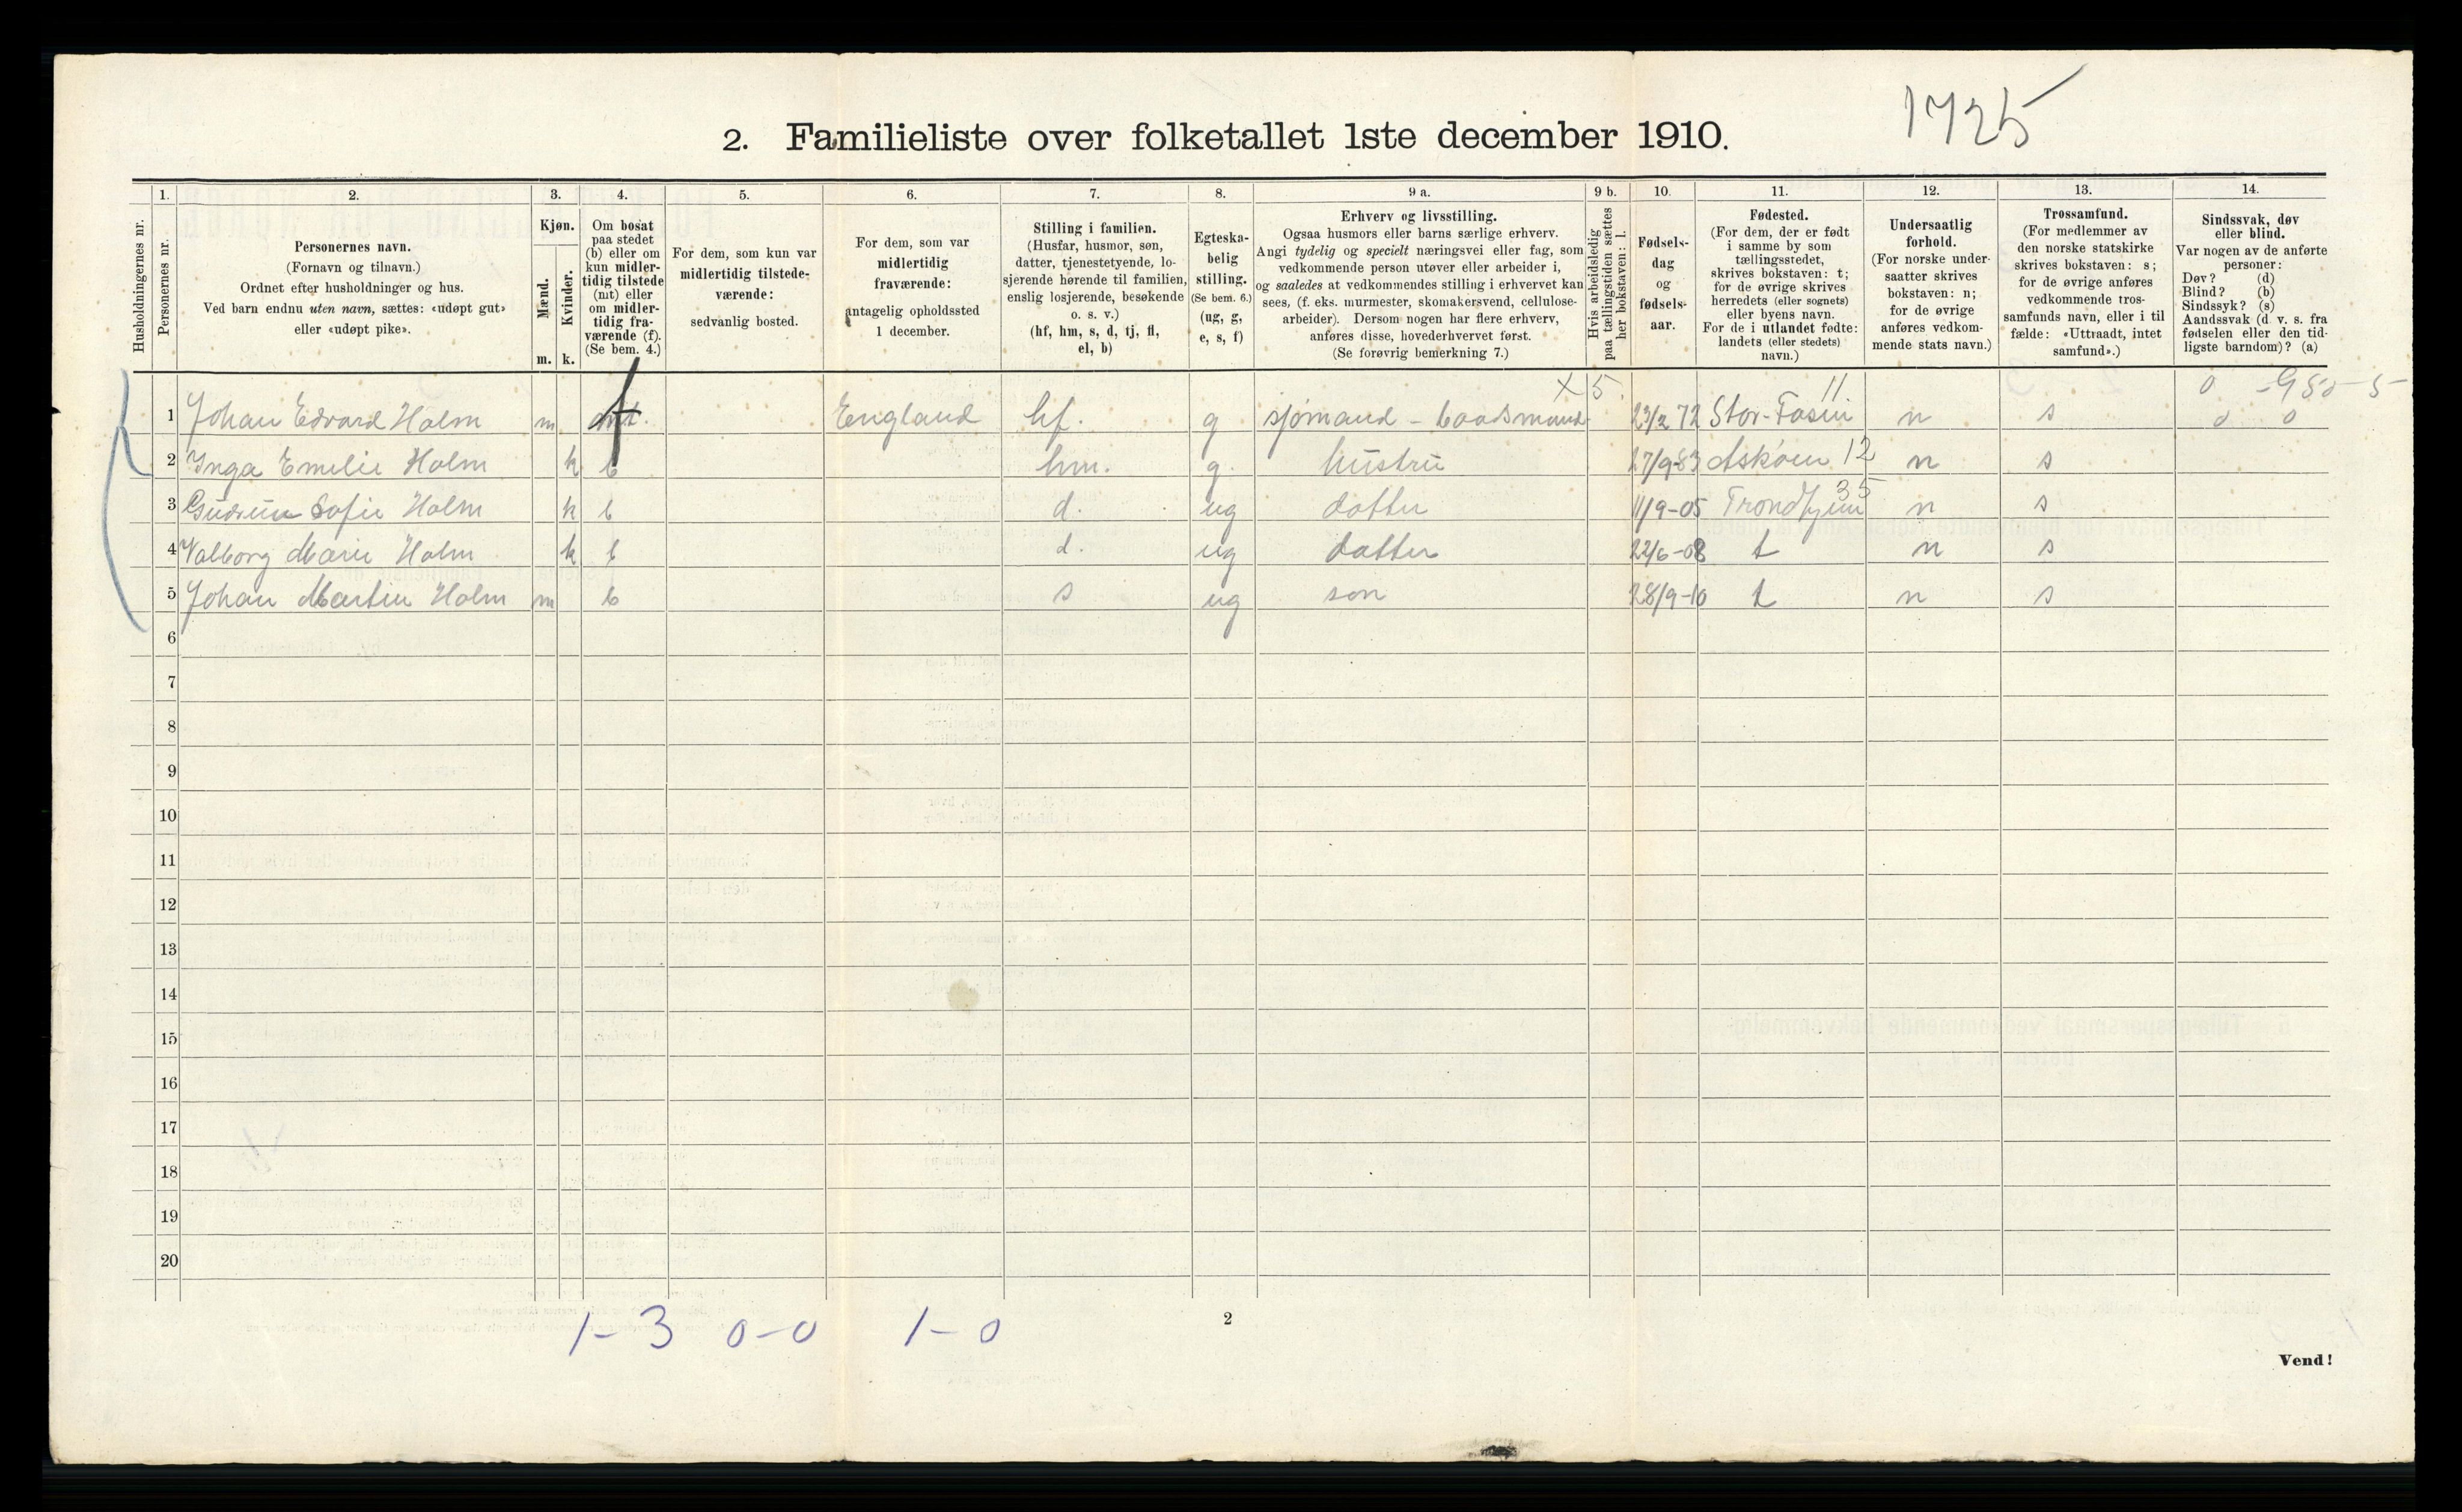 1725
2. Familieliste over folketallet 1ste december 1910.
Husholdningernes nr.
1.
Personernes nr.
2.
Personernes navn.
(Fornavn og tilnavn.)
Ordnet efter husholdninger og hus.
Ved barn endnu uten navn, sættes: «udøpt gut»
eller «udøpt pike».
3.
Kjøn.
Mænd.
Kvinder.
m. k.
4.
Om bosat
paa stedet
(b) eller om
kun midler-
tidig tilstede
(mt) eller
om midler-
tidig fra-
værende (f).
(Se bem. 4.)
5.
For dem, som kun var
midlertidig tilstede-
værende:
sedvanlig bosted.
6.
For dem, som var
midlertidig
fraværende:
antagelig opholdssted
1 december.
7.
Stilling i familien.
(Husfar, husmor, søn,
datter, tjenestetyende, lo-
sjerende hørende til familien,
enslig losjerende, besøkende
o. s. v.)
(hf, hm, s, d, tj, fl,
el, b)
8.
Egteska-
belig
stilling.
(Se bem. 6.)
(ug, g,
e, s, f)
9 a.
Erhverv og livsstilling.
Ogsaa husmors eller barns særlige erhverv.
Angi tydelig og specielt næringsvei eller fag, som
vedkommende person utøver eller arbeider i,
og saaledes at vedkommendes stilling i erhvervet kan
sees, (f. eks. murmester, skomakersvend, cellulose-
arbeider). Dersom nogen har flere erhverv,
anføres disse, hovederhvervet først.
(Se forøvrig bemerkning 7.)
9 b.
Hvis arbeidsledig
paa tællingstiden sættes
her bokstaven: l.
10.
Fødsels-
dag
og
fødsels-
aar.
11.
Fødested.
(For dem, der er født
i samme by som
tællingsstedet,
skrives bokstaven: t;
for de øvrige skrives
herredets (eller sognets)
eller byens navn.
For de i utlandet fødte:
landets (eller stedets)
navn.)
12.
Undersaatlig
forhold.
(For norske under-
saatter skrives
bokstaven: n;
for de øvrige
anføres vedkom-
mende stats navn.)
13.
Trossamfund.
(For medlemmer av
den norske statskirke
skrives bokstaven: s;
for de øvrige anføres
vedkommende tros-
samfunds navn, eller i til
fælde: «Uttraadt, intet
samfund».)
14.
Sindssvak, døv
eller blind.
Var nogen av de anførte
personer:
Døv? (d)
Blind? (b)
Sindssyk? (s)
Aandssvak (d. v. s. fra
fødselen eller den tid-
ligste barndom)? (a)
x 5 11 0
1 Johan Edvard Holm m f England hf. g sjømand - baadsmand 23/2 72 Stor-Fosen n s 0 0
2 Inga Emelie Holm k b hm. g. hustru 27/9-83 Askøen 12 n s
3 Gudrun Sofie Holm k b d. ug datter 11/9-05 Trondhjem 35 n s
4 Valborg Marie Holm k b d. ug datter 22/6-08 t n s
5 Johan Martin Holm m b s ug son 28/9-10 t n s
6
7
8
9
10
11
12
13
14
15
16
17
18
19
20
1-3 0-0 1-0
2
Vend!